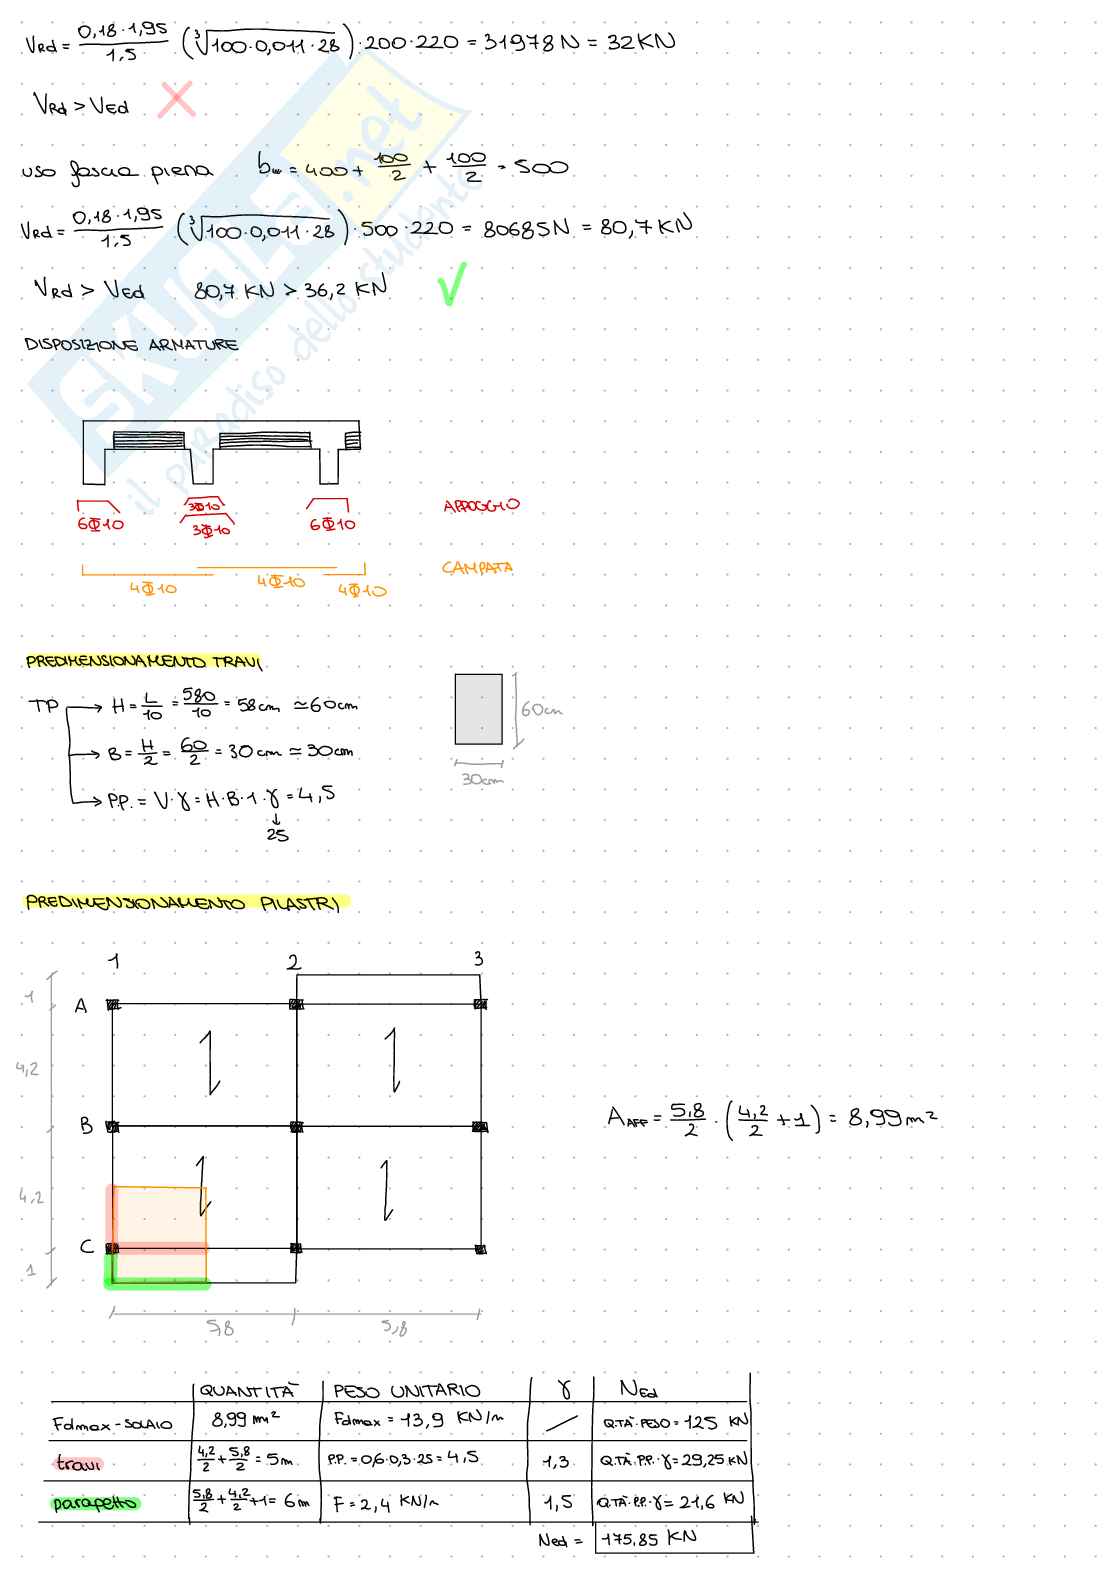 VRd = 0,18·1,95 / 1,5 (∛100·0,011·28)·200·220 = 31978 N = 32 KN
VRd > VEd
uso fascia piena bw = 400 + 100/2 + 100/2 = 500
VRd = 0,18·1,95 / 1,5 (∛100·0,011·28)·500·220 = 80685 N = 80,7 KN
VRd > VEd 80,7 KN > 36,2 KN
DISPOSIZIONE ARMATURE
SKUOLA.net
il paradiso dello studente
3Φ10
6Φ10 3Φ10 6Φ10
APPOGGIO
4Φ10 4Φ10 4Φ10
CAMPATA
PREDIMENSIONAMENTO TRAVI
TP → H = L/10 = 580/10 = 58 cm ≃ 60 cm
→ B = H/2 = 60/2 = 30 cm ≃ 30 cm
→ P.P. = V·γ = H·B·1·γ = 4,5
↓
25
60 cm
30 cm
PREDIMENSIONAMENTO PILASTRI
1 2 3
1
A
4,2
B
4,2
C
1
5,8 5,8
AAFF = 5,8/2 · (4,2/2 + 1) = 8,99 m²
QUANTITÀ PESO UNITARIO γ NEd
Fdmax-SOLAIO 8,99 m² Fdmax = 13,9 KN/m / Q.TÀ·PESO = 125 KN
travi 4,2/2 + 5,8/2 = 5m P.P. = 0,6·0,3·25 = 4,5 1,3 Q.TÀ·P.P.·γ = 29,25 KN
parapetto 5,8/2 + 4,2/2 + 1 = 6 m F = 2,4 KN/m 1,5 Q.TÀ·P.P.·γ = 21,6 KN
NEd = 175,85 KN